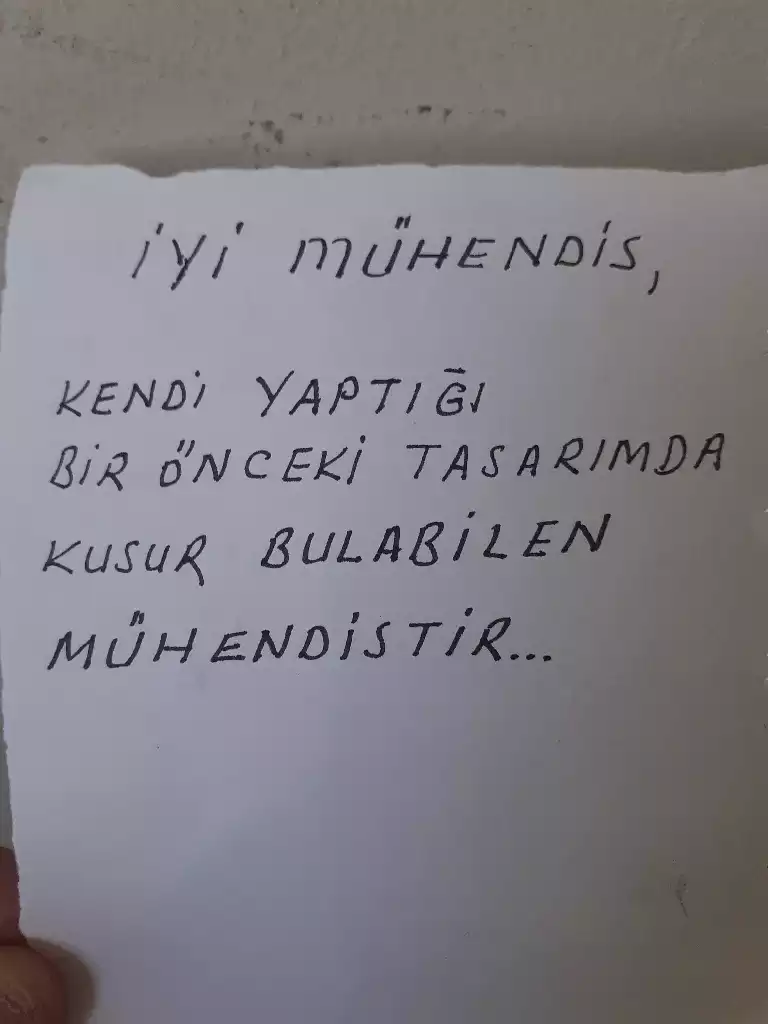 İYİ MÜHENDİS,
KENDİ YAPTIĞI
BİR ÖNCEKİ TASARIMDA
KUSUR BULABİLEN
MÜHENDİSTİR...